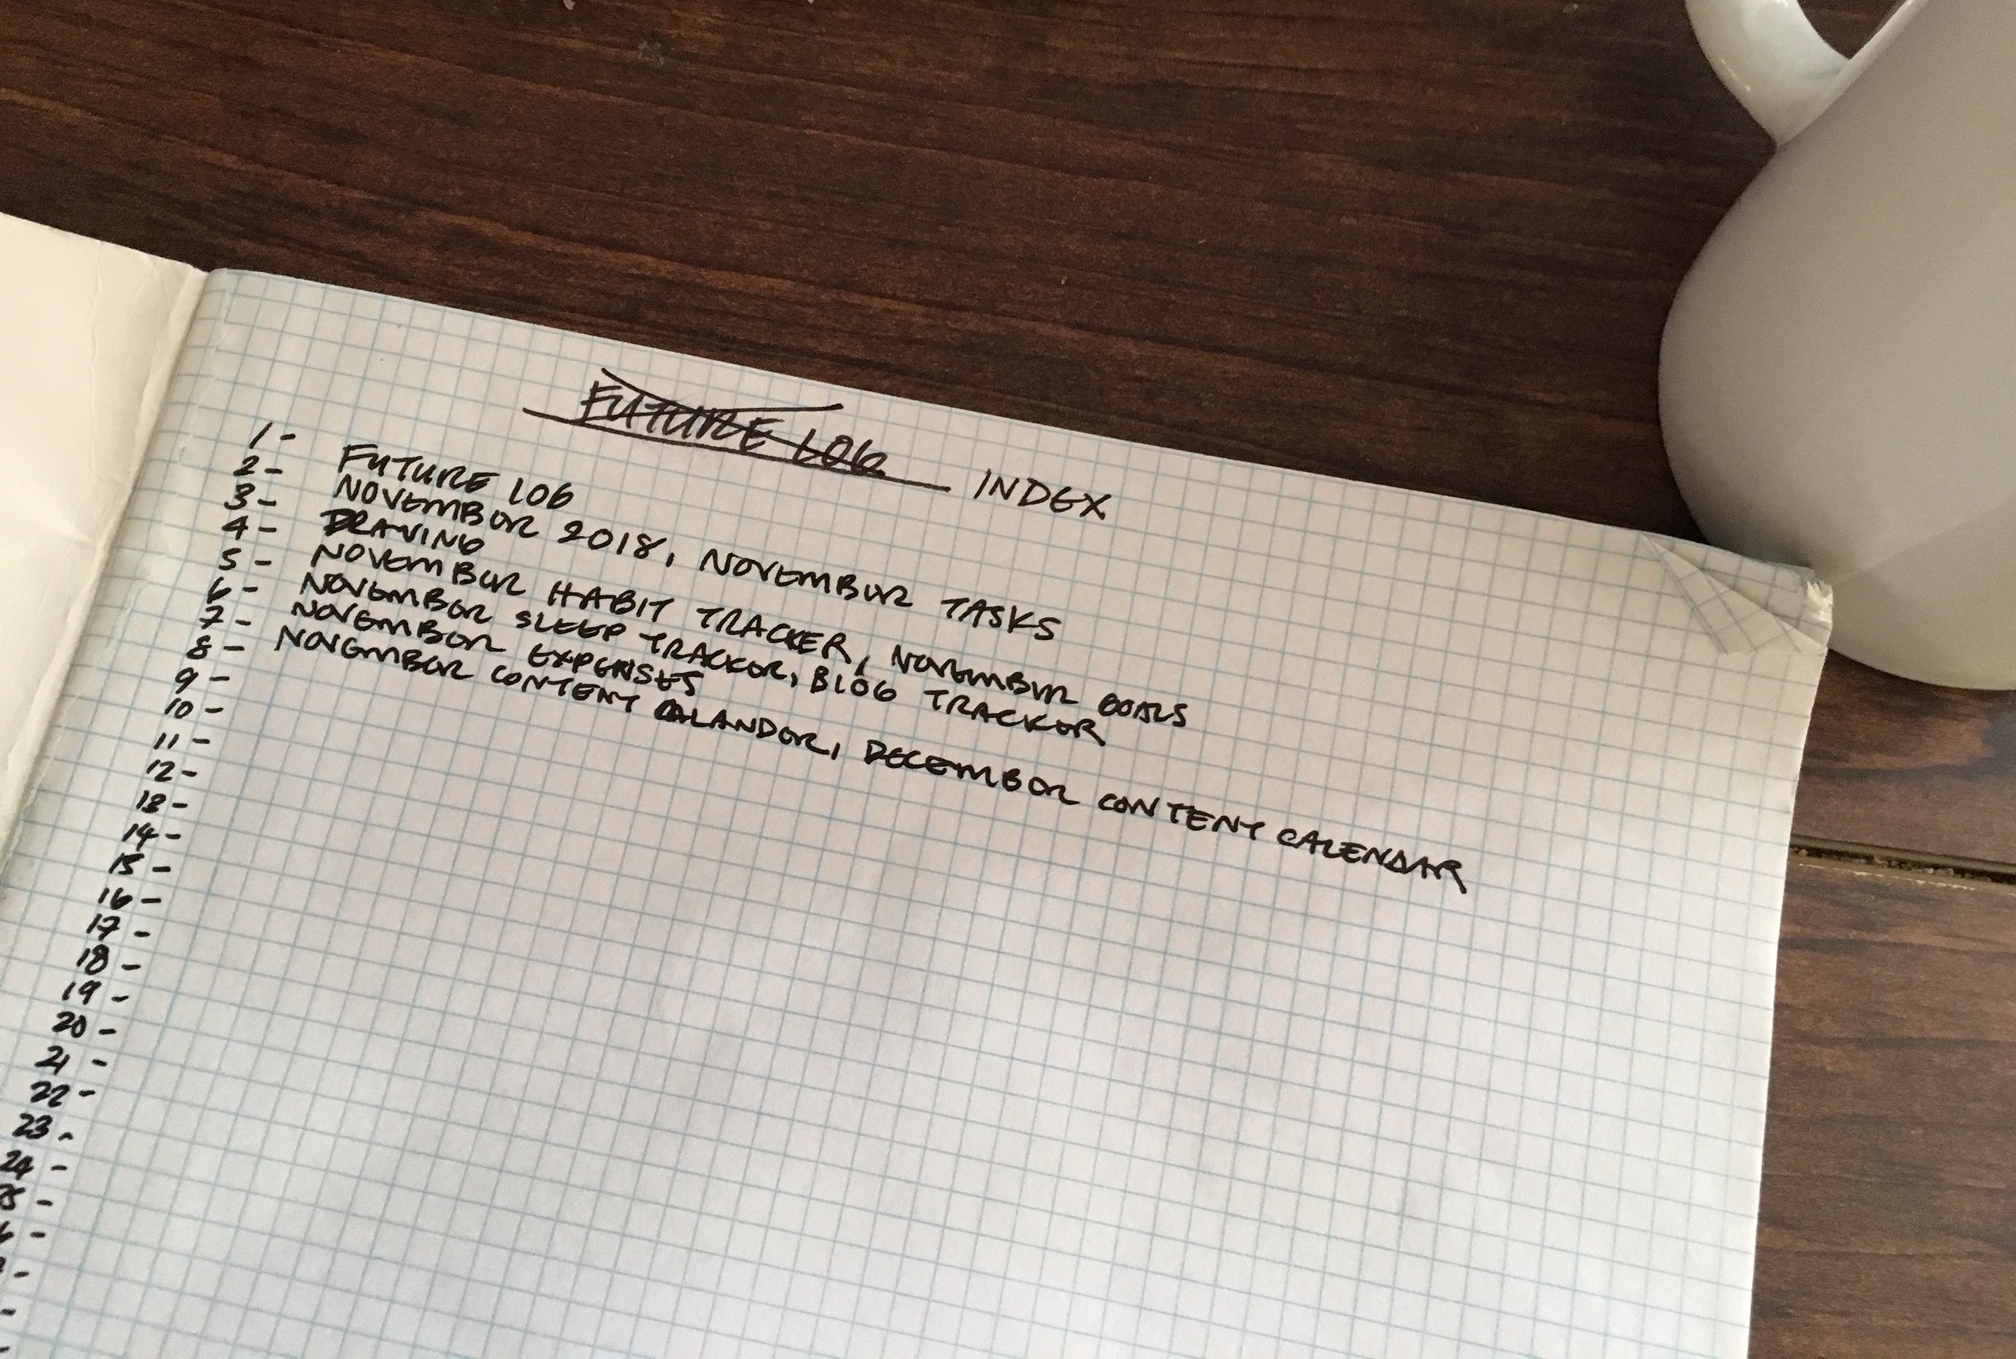 FUTURE LOG INDEX
1- FUTURE LOG
2- NOVEMBER 2018, NOVEMBER TASKS
3- DRAWING
4- NOVEMBER HABIT TRACKER, NOVEMBER GOALS
5- NOVEMBER SLEEP TRACKER, BLOG TRACKER
6- NOVEMBER EXPENSES
7- NOVEMBER CONTENT CALANDER, DECEMBER CONTENT CALENDAR
8-
9-
10-
11-
12-
13-
14-
15-
16-
17-
18-
19-
20-
21-
22-
23-
24-
25-